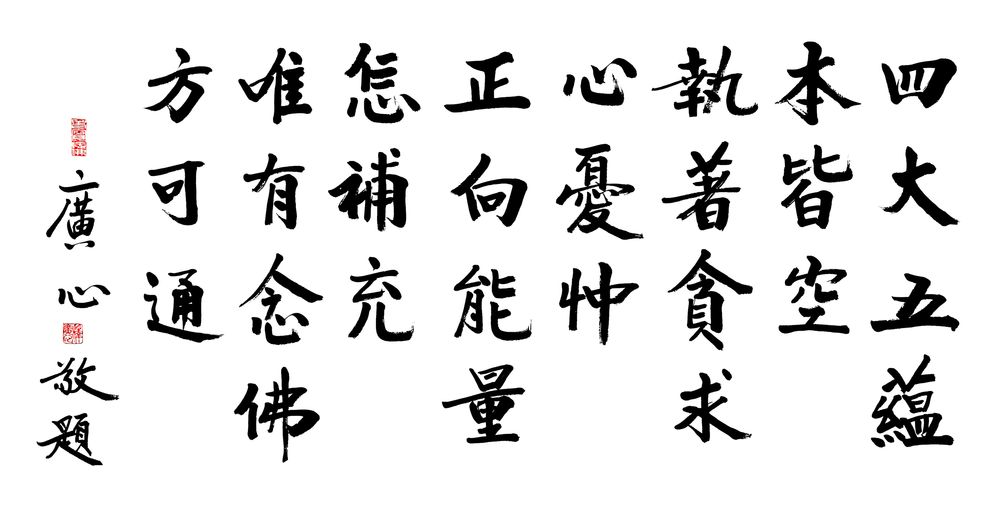 四大五蘊
本皆空
執著貪求
心憂忡
正向能量
怎補充
唯有念佛
方可通
廣心敬題